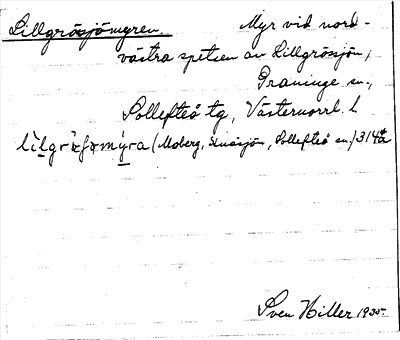 Lillgrösjömyren. Myr vid nord-
västra spetsen av Lillgrösjön,
Graninge sn.,
Sollefteå tg, Västernorrl. l.
(Moberg, Sollefteå sn.) 314
Sven Hiller 1935.